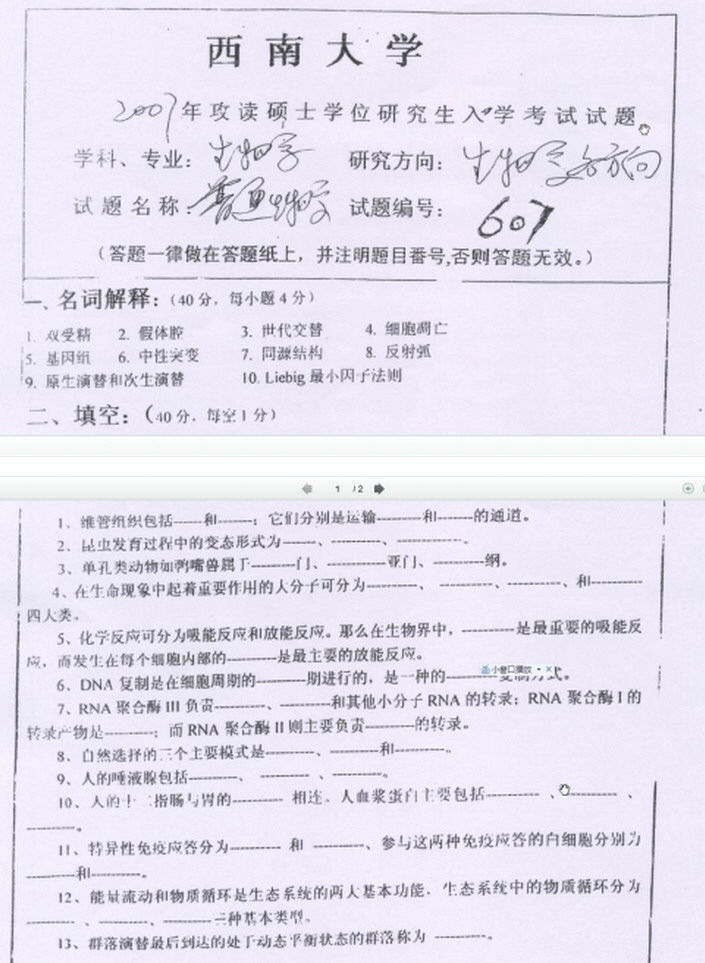 西南大学
2007年攻读硕士学位研究生入学考试试题
学科、专业：生物学 研究方向：生物学各方向
试题名称：普通生物学 试题编号：607
（答题一律做在答题纸上，并注明题目番号,否则答题无效。）
一、名词解释：（40分，每小题4分）
1. 双受精 2. 假体腔 3. 世代交替 4. 细胞凋亡
5. 基因组 6. 中性突变 7. 同源结构 8. 反射弧
9. 原生演替和次生演替 10. Liebig 最小因子法则
二、填空：（40分，每空1分）
1 /2
1、维管组织包括------和-------；它们分别是运输---------和-------的通道。
2、昆虫发育过程中的变态形式为-------、---------、------------。
3、单孔类动物如鸭嘴兽属于---------门、-----------亚门、---------纲。
4、在生命现象中起着重要作用的大分子可分为----------、----------、----------、和----------
四大类。
5、化学反应可分为吸能反应和放能反应。那么在生物界中，----------是最重要的吸能反
应，而发生在每个细胞内部的----------是最主要的放能反应。
6、DNA 复制是在细胞周期的----------期进行的，是一种的----------复制方式。
小窗口播放
7、RNA 聚合酶 III 负责----------、----------和其他小分子 RNA 的转录；RNA 聚合酶 I 的
转录产物是---------；而 RNA 聚合酶 II 则主要负责----------的转录。
8、自然选择的三个主要模式是----------、---------和----------。
9、人的唾液腺包括---------、---------、---------。
10、人的十二指肠与胃的---------- 相连。人血浆蛋白主要包括----------、----------、
---------。
11、特异性免疫应答分为---------- 和 ----------、参与这两种免疫应答的白细胞分别为
---------和---------。
12、能量流动和物质循环是生态系统的两大基本功能。生态系统中的物质循环分为
---------、---------、---------三种基本类型。
13、群落演替最后到达的处于动态平衡状态的群落称为 ----------。